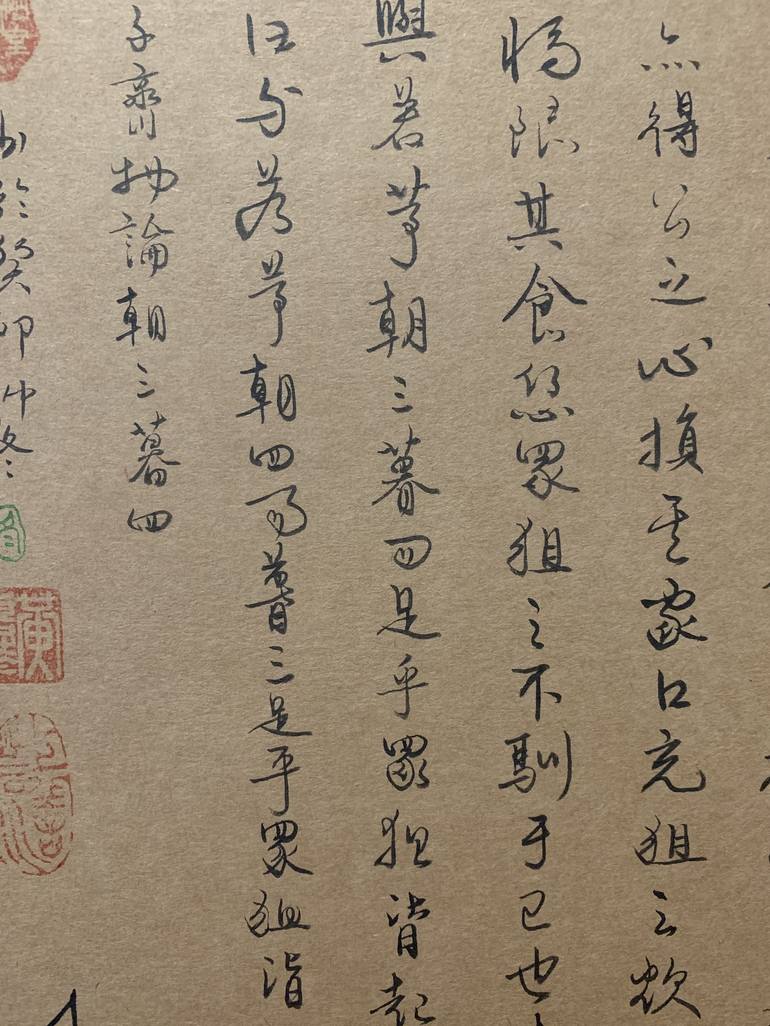 亦得公之心損其家口充狙之欲
將限其食恐眾狙之不馴于己也
與若芧朝三暮四足乎眾狙皆起
曰與若芧朝四而暮三足乎眾狙皆
子齊物論朝三暮四
於癸卯仲冬